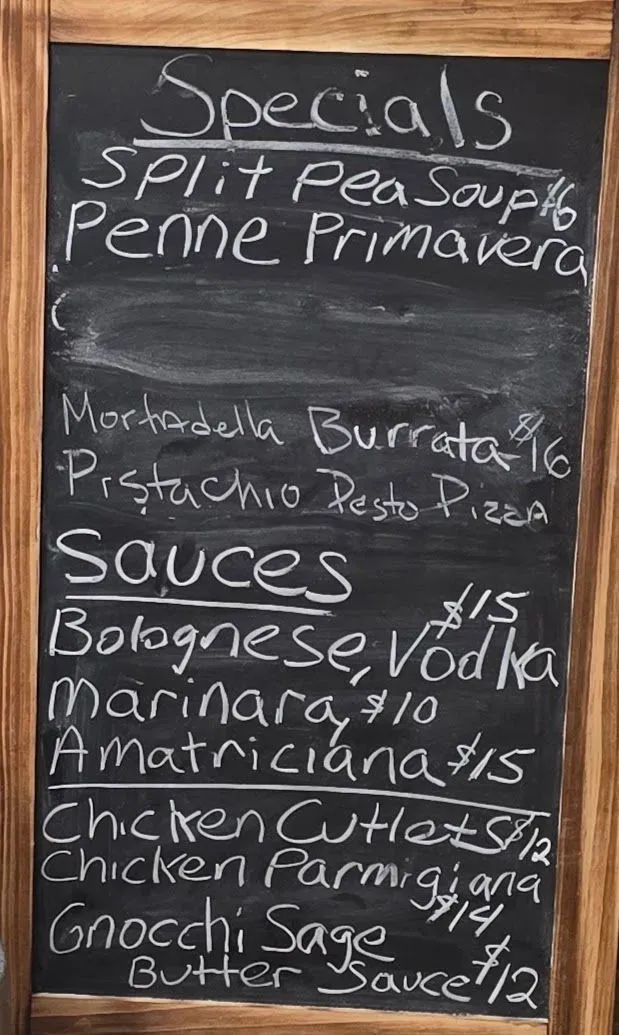 Specials
Split Pea Soup $6
Penne Primavera
Mortadella Burrata $16
Pistachio Pesto Pizza
Sauces
$15
Bolognese, Vodka
Marinara, $10
Amatriciana $15
Chicken Cutlets $12
Chicken Parmigiana
$14
Gnocchi Sage
Butter Sauce $12